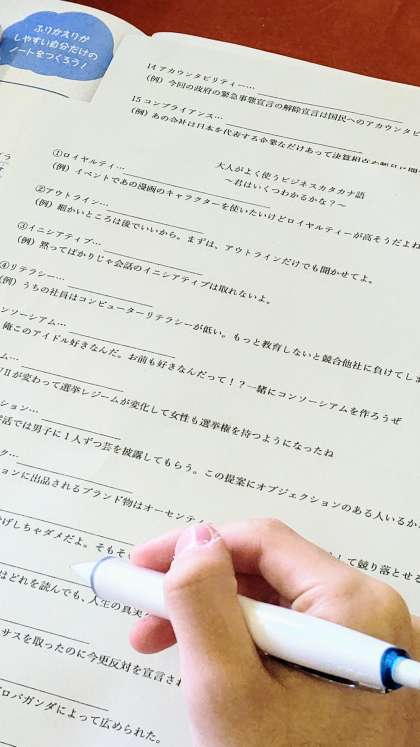 ふりかえりが
しやすい自分だけの
ノートをつくろう！
14 アカウンタビリティー…
(例) 今回の政府の緊急事態宣言の解除宣言は国民へのアカウンタビ
15 コンプライアンス…
(例) あの会社は日本を代表する企業なだけあって決算
大人がよく使うビジネスカタカナ語
～君はいくつわかるかな？～
①ロイヤルティ…
(例) イベントであの漫画のキャラクターを使いたいけどロイヤルティーが高そうだよね
②アウトライン…
(例) 細かいところは後でいいから。まずは、アウトラインだけでも聞かせてよ。
③イニシアティブ…
(例) 黙ってばかりじゃ会話のイニシアティブは取れないよ。
④リテラシー…
(例) うちの社員はコンピューターリテラシーが低い。もっと教育しないと競合他社に負けてしま
ンソーシアム…
俺このアイドル好きなんだ。お前も好きなんだって！？一緒にコンソーシアムを作ろうぜ
ム…
が変わって選挙レジームが変化して女性も選挙権を持つようになったね
ション…
活では男子に１人ずつ芸を披露してもらう。この提案にオブジェクションのある人いるか
ク…
ョンに出品されるブランド物はオーセンティ
して競り落とせる
げしちゃダメだよ。そもそ
はどれを読んでも、人生の真実
サスを取ったのに今更反対を宣言され
ロパガンダによって広められた。